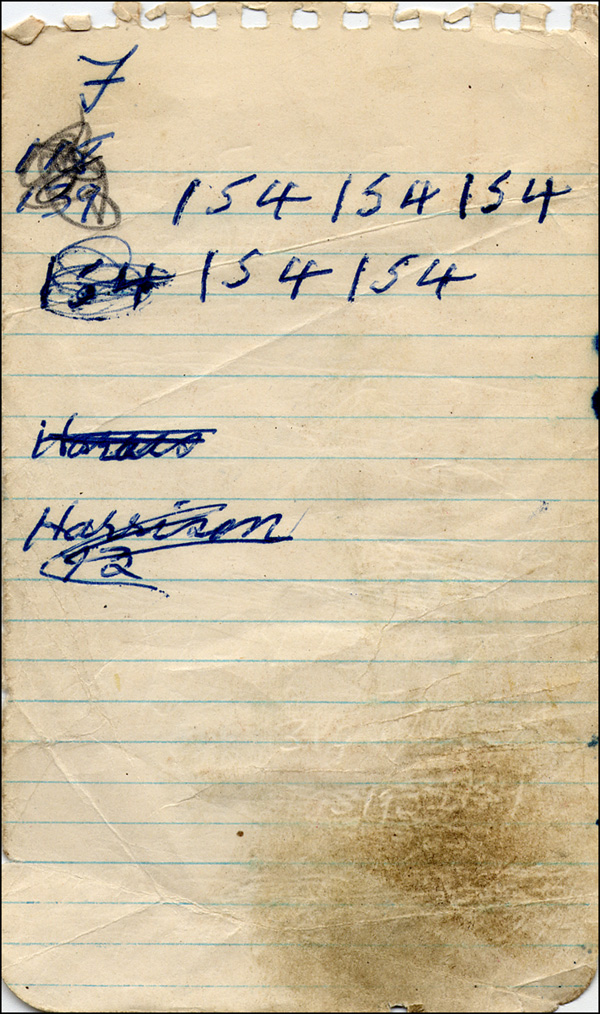 7
118
139 154 154 154
154 154 154
Harrison
92